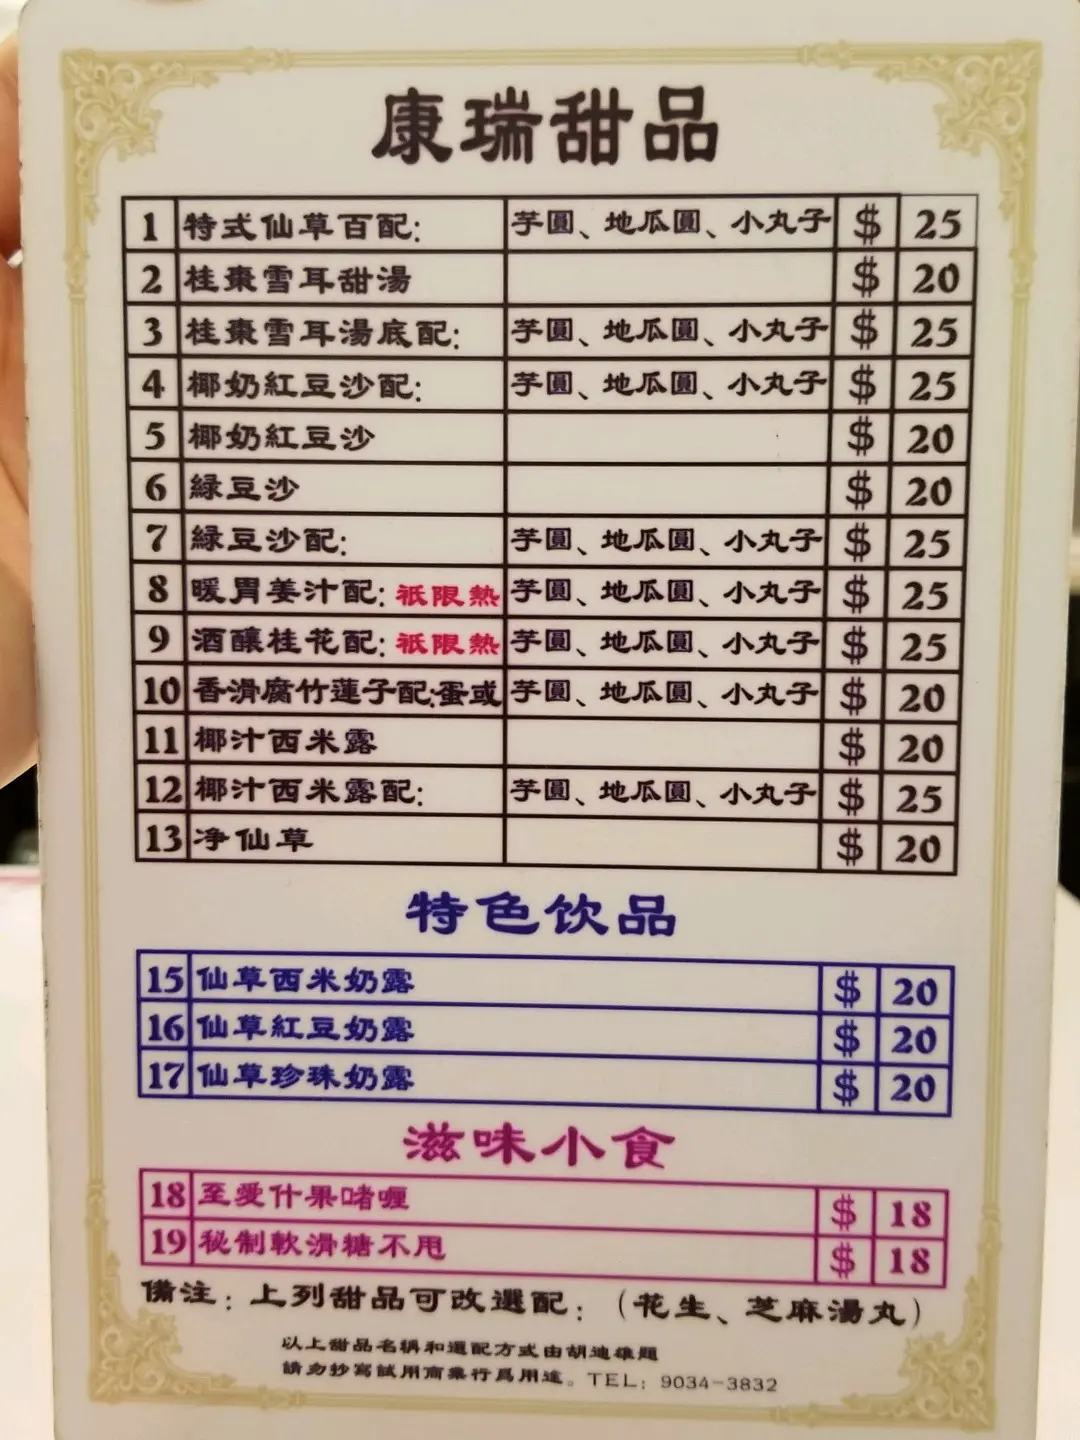 康瑞甜品
1 特式仙草百配: 芋圓、地瓜圓、小丸子 $ 25
2 桂棗雪耳甜湯 $ 20
3 桂棗雪耳湯底配: 芋圓、地瓜圓、小丸子 $ 25
4 椰奶紅豆沙配: 芋圓、地瓜圓、小丸子 $ 25
5 椰奶紅豆沙 $ 20
6 綠豆沙 $ 20
7 綠豆沙配: 芋圓、地瓜圓、小丸子 $ 25
8 暖胃姜汁配: 祇限熱 芋圓、地瓜圓、小丸子 $ 25
9 酒釀桂花配: 祇限熱 芋圓、地瓜圓、小丸子 $ 25
10 香滑腐竹蓮子配:蛋或 芋圓、地瓜圓、小丸子 $ 20
11 椰汁西米露 $ 20
12 椰汁西米露配: 芋圓、地瓜圓、小丸子 $ 25
13 净仙草 $ 20
特色饮品
15 仙草西米奶露 $ 20
16 仙草紅豆奶露 $ 20
17 仙草珍珠奶露 $ 20
滋味小食
18 至愛什果啫喱 $ 18
19 秘制軟滑糖不甩 $ 18
備注:上列甜品可改選配:(花生、芝麻湯丸)
以上甜品名稱和選配方式由胡連雄題
請勿抄寫試用商業行爲用途。TEL: 9034-3832